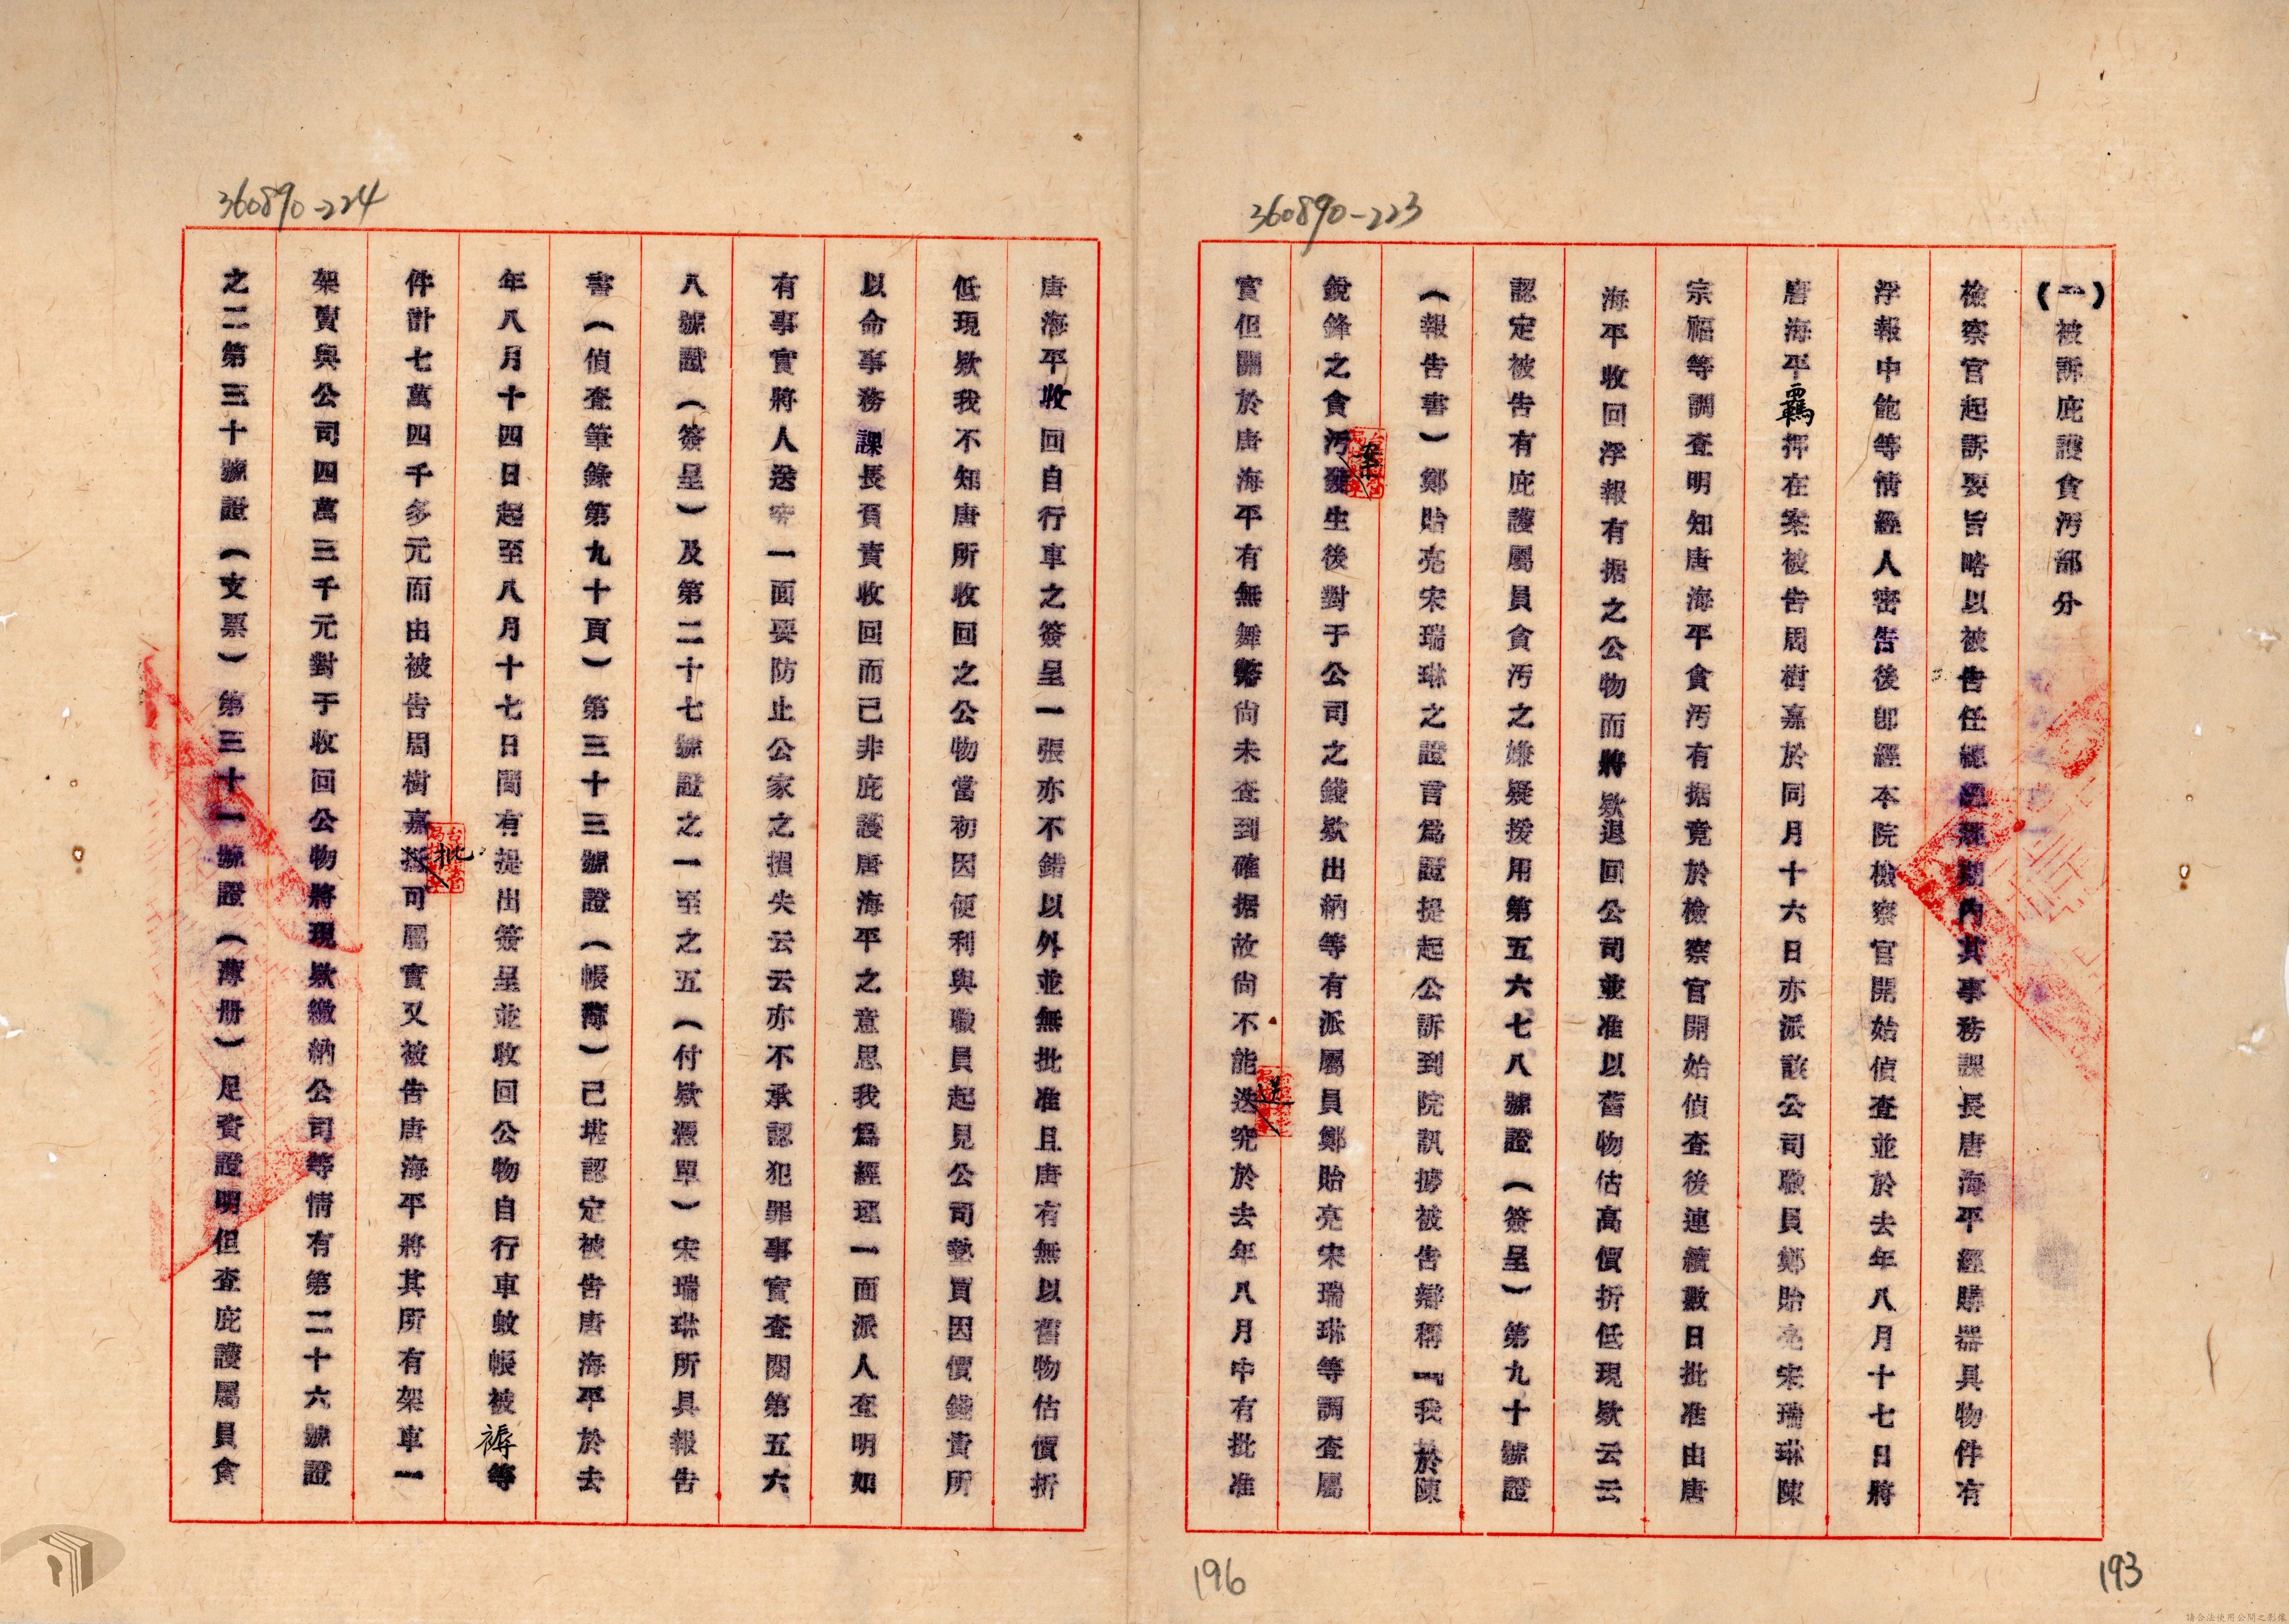 360890-223
(一)被訴庇護貪污部分
檢察官起訴要旨略以被告任總經理期內其事務課長唐海平經購器具物件有
浮報中飽等情經人密告後卽經本院檢察官開始偵查並於去年八月十七日將
唐海平羈押在案被告周樹嘉於同月十六日亦派該公司職員鄭貽亮宋瑞琳陳
宗福等調查明知唐海平貪污有据竟於檢察官開始偵查後連續數日批准由唐
海平收回浮報有据之公物而將欵退回公司並准以舊物估高價折低現欵云云
認定被告有庇護屬員貪污之嫌疑援用第五六七八號證(簽呈)第九十號證
(報告書)鄭貽亮宋瑞琳之證言爲證提起公訴到院訊據被告辯稱「我於陳
銳鋒之貪污案發生後對于公司之錢欵出納等有派屬員鄭貽亮宋瑞琳等調查屬
實但關於唐海平有無舞弊尙未查到確据故尙不能送究於去年八月中有批准
193
360890-224
唐海平收回自行車之簽呈一張亦不錯以外並無批准且唐有無以舊物估價折
低現欵我不知唐所收回之公物當初因便利與職員起見公司墊買因價錢貴所
以命事務課長負責收回而已非庇護唐海平之意思我爲經理一面派人查明如
有事實將人送究一面要防止公家之損失云云亦不承認犯罪事實查閱第五六
八號證(簽呈)及第二十七號證之一至之五(付欵憑單)宋瑞琳所具報告
書(偵查筆錄第九十頁)第三十三號證(帳簿)已堪認定被告唐海平於去
年八月十四日起至八月十七日間有提出簽呈並收回公物自行車蚊帳被褥等
件計七萬四千多元而由被告周樹嘉批可屬實又被告唐海平將其所有架車一
架賣與公司四萬三千元對于收回公物將現欵繳納公司等情有第二十六號證
之二第三十號證(支票)第三十一號證(簿册)足資證明但查庇護屬員貪
196
請合法使用公開之影像